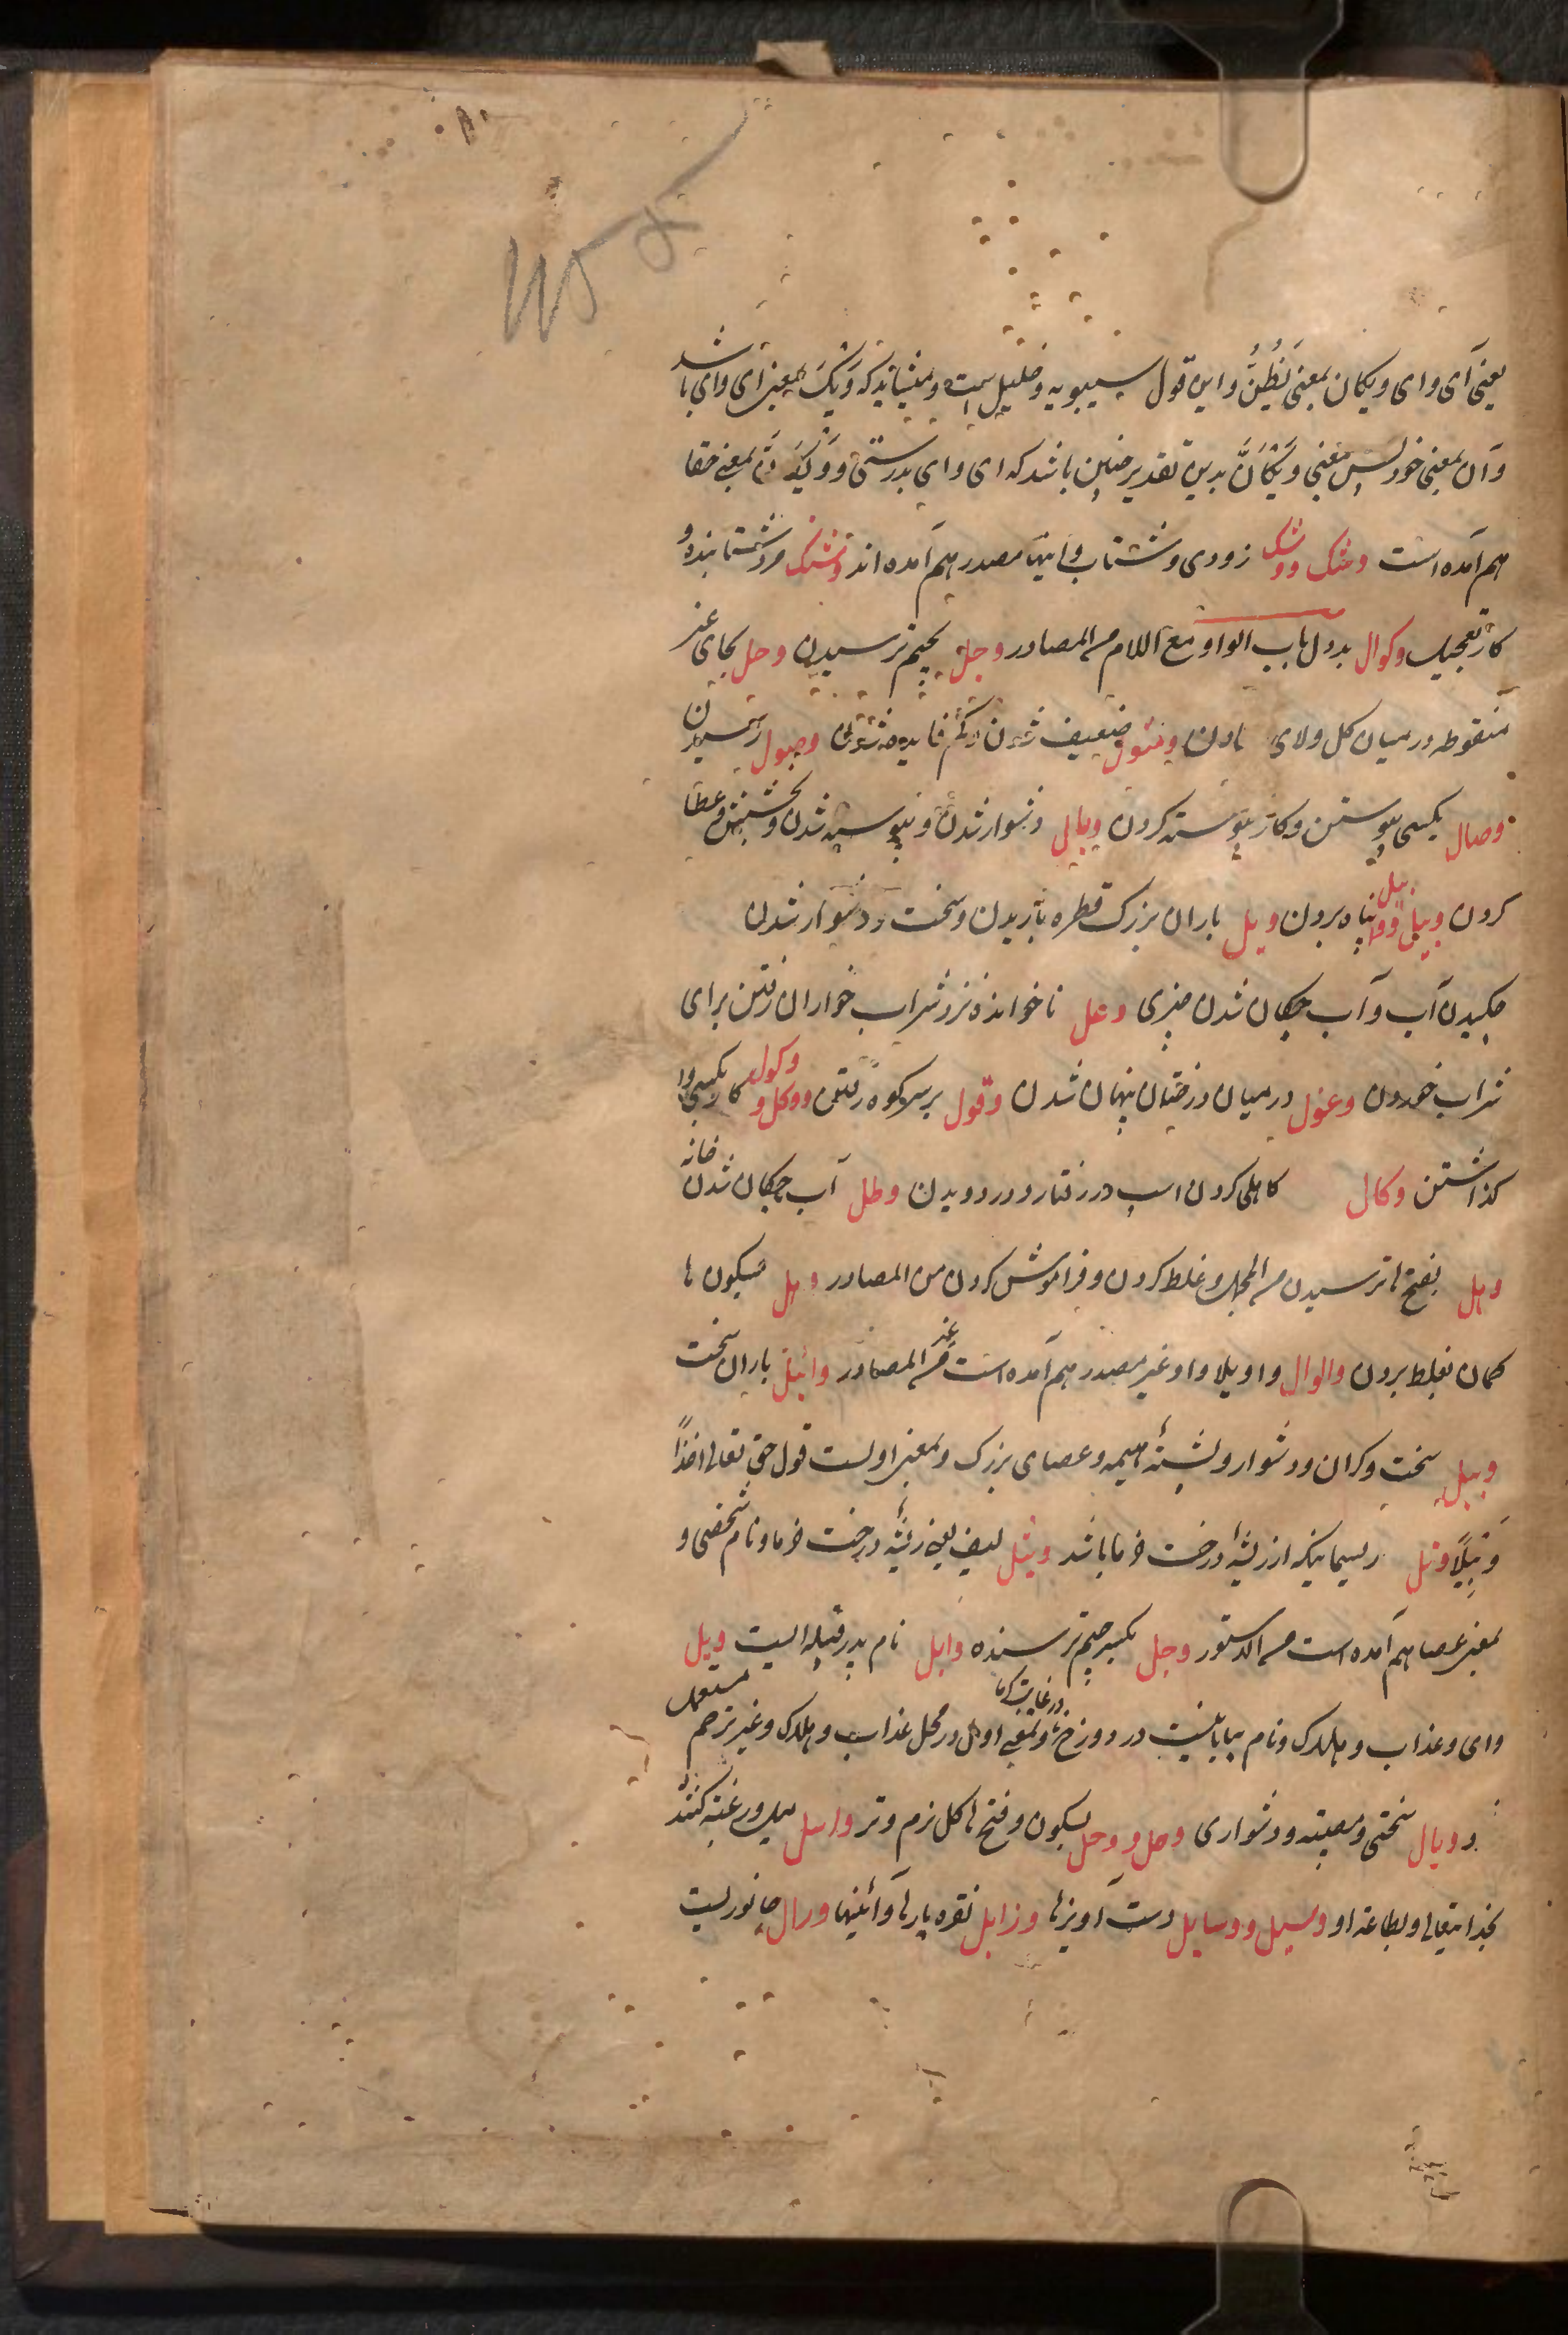 یعنی آی وای ویکان بمعنی یَظُنُّ واین قول سیبویه وخلیل است و میشاید که وَیْکَ بمعنی ای وای باشد
وآن بمعنی خود پس معنی وَیْکَاَنَّ بدین تقدیر چنین باشد که ای وای بدرستی و بمعنی حقا
هم آمده است وشک ووشک زودی وشتاب واینها مصدر هم آمده اند وشک مرد شتابنده و
کار تعجیل وکوال بددل باب الواو مع اللام من المصادر وجل بجیم ترسیدن وحل بحای غیر
منقوطه درمیان کل ولای ضعیف شدن وکم فایده شدن وصول رسیدن
وصال بکسی پیوستن وکار پیوسته کردن وبال دشوار شدن وبخشش وعطا
کردن پناه بردن وبل باران بزرگ قطره باریدن وسخت ودشوار شدن
چکیدن آب وآب چکان شدن چیزی وغل ناخوانده نزد شراب خواران رفتن برای
شراب خوردن وغول درمیان درختان پنهان شدن وقول بر سر کوه رفتن ووکل و وکول کار بکسی وا
کذاشتن وکال کاهلی کردن اسپ در رفتار ودر دویدن وطل آب چکان شدن خانه
وهل بفتح ها ترسیدن من المجمل وغلط کردن وفراموش کردن من المصادر وهل بسکون ها
کمان بغلط بردن والوال واویلا واو غیر مصدر هم آمده است من غیر المصادر وابل باران سخت
وبیل سخت وکران ودشوار وپشتهٔ هیمه وعصای بزرگ وبمعنی اولست قول حق تعالی اخذًا
وَبِیلًا وثل ریسمانیکه از ریشهٔ درخت خرما باشد وثیل لیف یعنی ریشهٔ درخت خرما ونام شخصی و
بمعنی عصا هم آمده است من الدستور وجل بکسر جیم ترسنده وابل نام پدر قبیله ایست ویل
وای وعذاب وهلاک ونام بیابانیست در دوزخ در غایت کرما وبمعنی اول در محل عذاب وهلاک وغیر ترحم مستعمل
ووبال سختی ومصیبته ودشواری وحل و وحل بسکون وفتح حا کل نرم وتر واسل میل ورغبته کننده
بخدایتعالی وبطاعة او وسیل ووسایل دست آویزها وزایل نقره پارها وآئینها ورل جانوریست